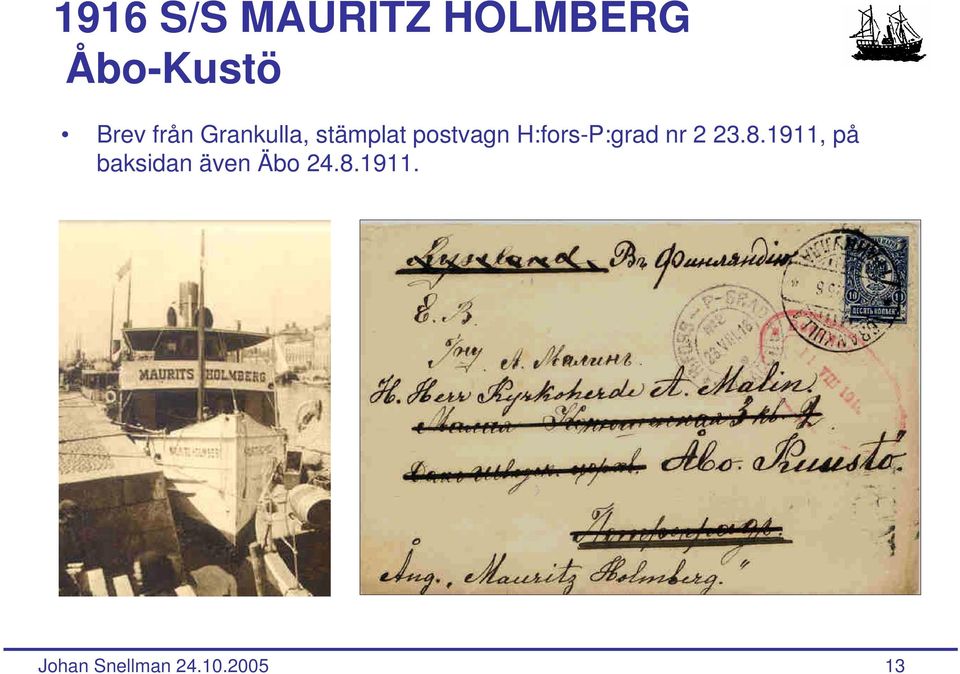 1916 S/S MAURITZ HOLMBERG
Åbo-Kustö
• Brev från Grankulla, stämplat postvagn H:fors-P:grad nr 2 23.8.1911, på
baksidan även Äbo 24.8.1911.
MAURITS HOLMBERG
MAURITS HOLMBERG
Ryssland. Въ Финляндiю
Е. В.
Г-ну А. Малинъ.
H. Herr Kyrkoherde A. Malin.
3 кв 2
Åbo. Kuusto.
Ång. "Mauritz Holmberg."
P-GRAD
№2
23.VIII.16
10
ДЕСЯТЬ КОПѢЕКЪ
VIII 191
Johan Snellman 24.10.2005
13